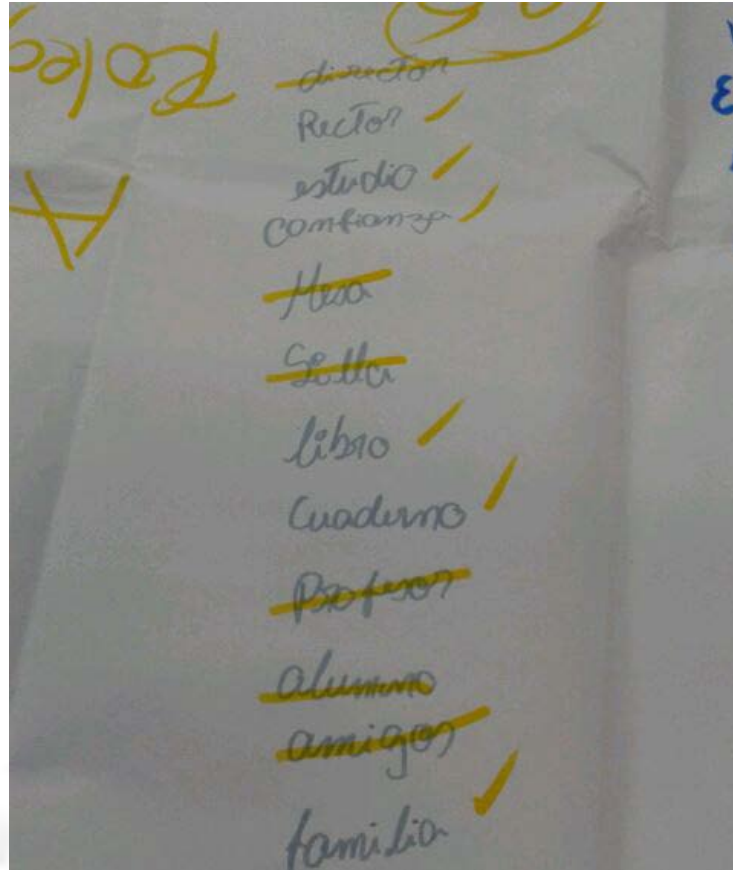 director
Rector
estudio
confianza
Mesa
Silla
libro
Cuaderno
Profesor
alumno
amigos
familia